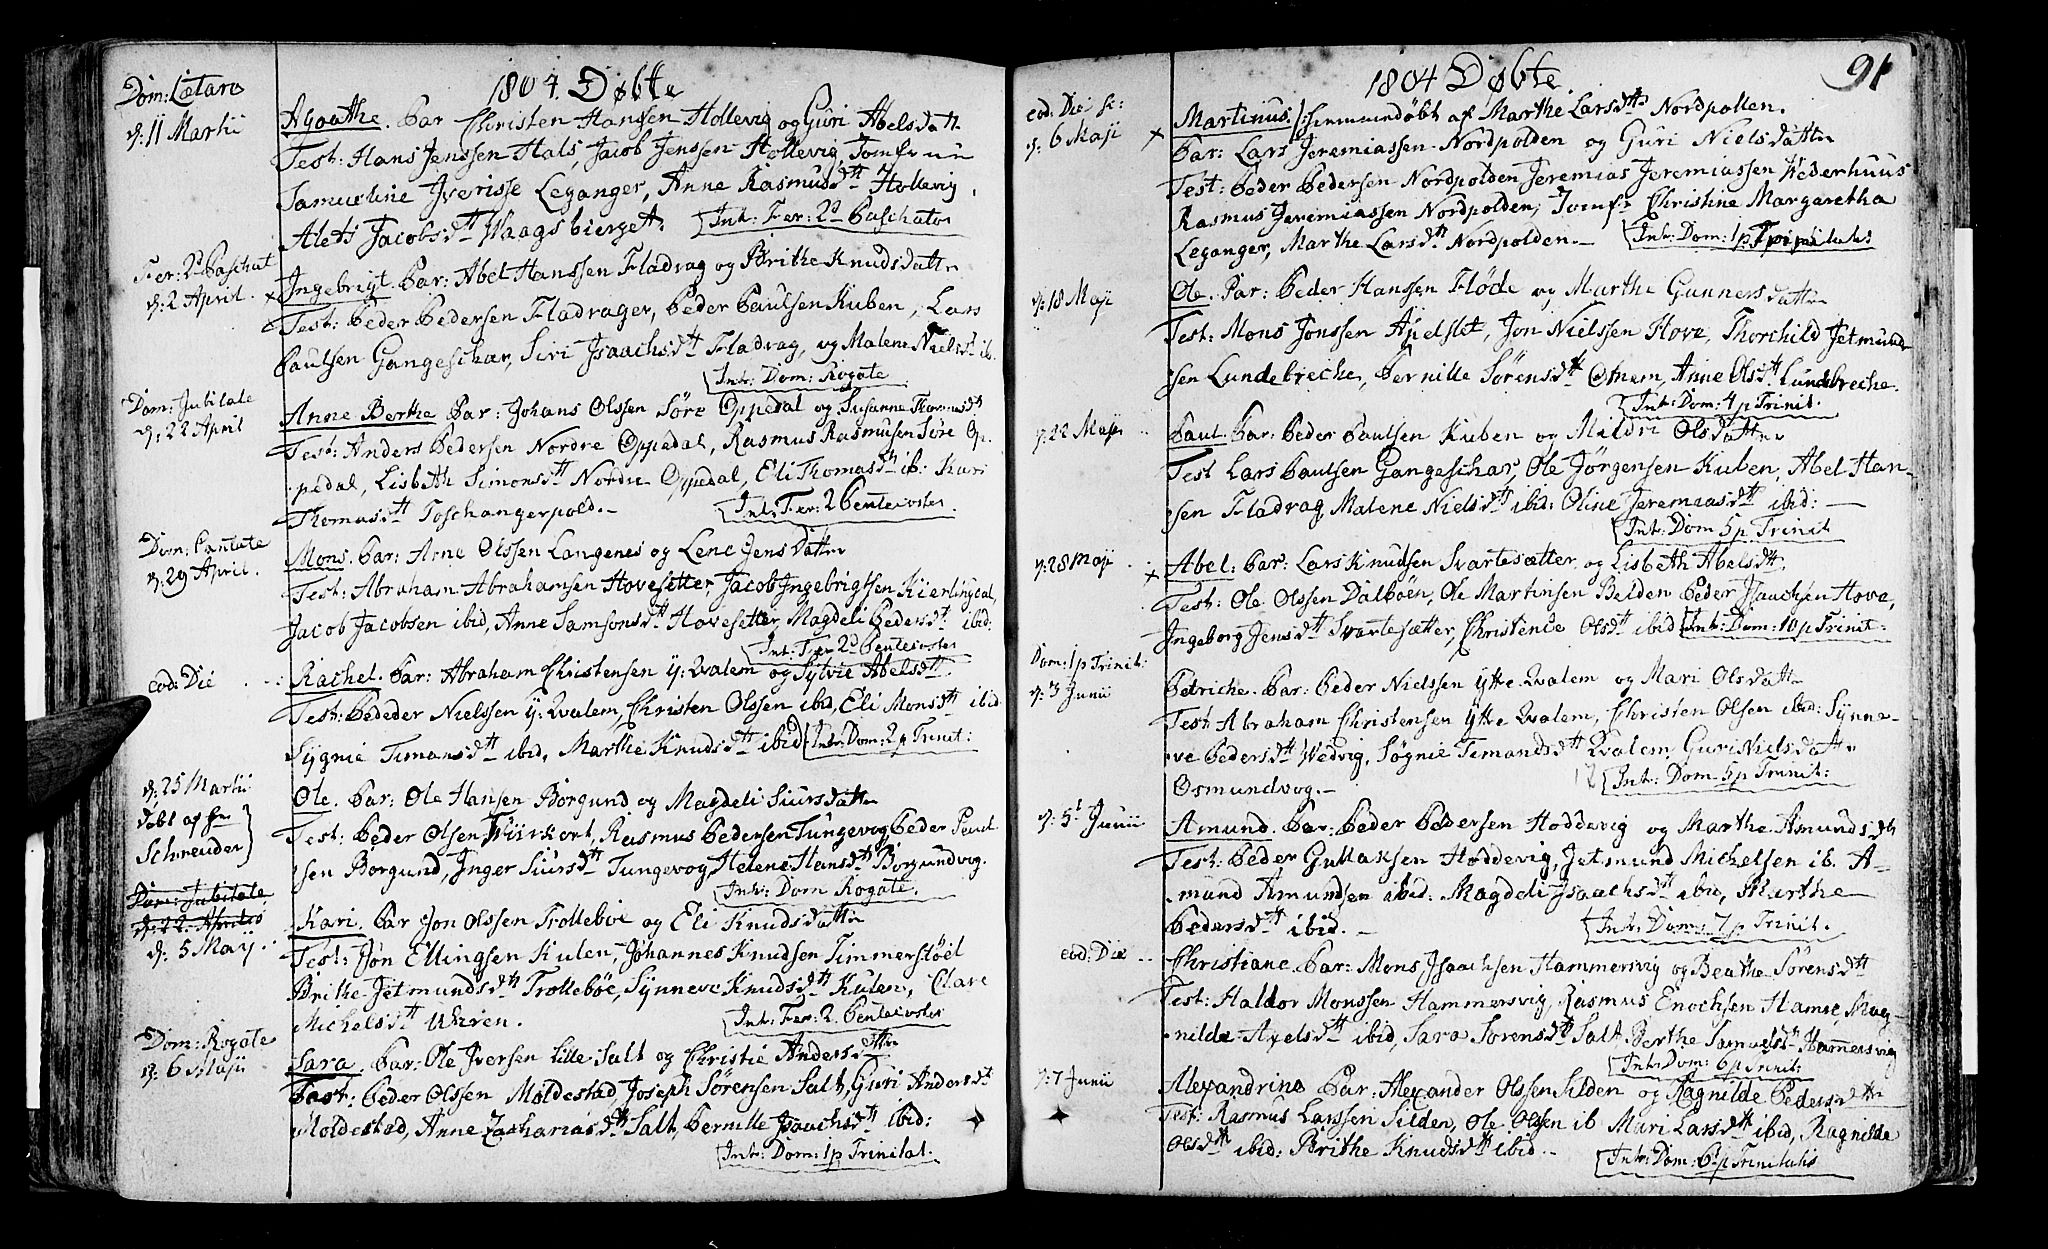 1804. Døbte
Dom: Lætare
d: 11 Martii
Agathe. Par Christen Hansen Hollevig og Guri Abelsdattr
Test: Hans Jenssen Hals, Jacob Jenssen Hollevig, Jomfrue
Samueline Iverisse Leganger, Anne Rasmusdtt Hollevig,
Alets Jacobsdtt Waagsbierget. Int: Fer: 2d Paschatos
Fer: 2d Paschat
d: 2 April.
Ingebrigt. Par: Abel Hanssen Fladrag og Brithe Knudsdattr
Test: Peder Pedersen Fladrager, Peder Paulsen Kuben, Lars
Paulsen Gangeschar, Siri Isaachsdtt Fladrag, og Malene Nielsd ib.
Int: Dom: Rogate
Dom: Jubilate
d: 22 April
Anne Berthe Par: Johans Olssen Søre Oppedal og Susanne Thomasdtt
Test: Anders Pedersen Nordre Oppedal, Rasmus Rasmusen Søre Op-
pedal, Lisbeth Simonsdtt Nordre Oppedal, Eli Thomasdtt ib: Kari
Thomasdtt Toschangerpold.- Int: Fer: 2 Pentecostes
Dom: Cantate
d: 29 April.
Mons. Par: Arne Olssen Langenes og Lene Jensdattr
Test: Abraham Abrahamsen Hovesetter, Jacob Ingebrigtsen Kierlingdal,
Jacob Jacobsen ibid, Anne Samsonsdtt Hovesetter, Magdeli Pedersdtt ibid:
Int: Fer 2d Pentecostes
eod: Die
Rachel. Par: Abraham Christensen y: Qvalem og Sylvie Abelsdtt.
Test: Pededer Nielssen y: Qvalem, Christen Olssen ibid, Eli Monsdtt ibid
Sygnie Timansdtt ibid, Marthe Knudsdtt ibid. Int: Dom: 2 p Trinit:
d: 25 Martii
døbt af Hr
Schreuder
Ole. Par: Ole Hansen Borgund og Magdeli Siursdattr
Test: Peder Olsen Wiirkort, Rasmus Pedersen Tungevog Peder Paul
sen Borgund, Inger Siursdtt Tungevog, Helene Hansdtt Borgundvog.
Int: Dom Rogate.
Dom: Jubilate
d: 22 Aprilis
d: 5 Maij
Kari. Par Jon Olssen Trolleboe og Eli Knudsdattr
Test: Jon Ellingsen Kulen, Johannes Knudsen Timmerstøel
Brithe Jetmundsdtt Trolleboe, Synneve Knudsdtt Kulen, Clare
Michelsdtt Uhren. Int: Fer: 2. Pentecostes
Dom: Rogate
d: 6 Maji
Sara. Par: Ole Iversen Lille Salt og Christie Andersdattr
Test: Peder Olssen Moldestad, Joseph Sørensen Salt, Guri Andersdtt
Moldestad, Anne Zachariasdtt Salt, Pernille Isaachsdtt ibid:
Int: Dom: 1 p Trinitat.
1804 Døbte.
91
eod: Die
d: 6 Maji
Martinus. hiemmedøbt af Marthe Larsdtt Nordpollen.
Par: Lars Jeremiassen Nordpolden og Guri Nielsdattr
Test: Peder Pedersen Nordpolden Jeremias Jeremiassen Kederhuus
Rasmus Jeremiassen Nordpolden, Jomfr Christine Margaretha
Leganger, Marthe Larsdtt Nordpolden.- Int: Dom: 1 p Trinitatis
d: 18 Maji
Ole. Par: Peder Hanssen Fløde og Marthe Gunnersdattr
Test: Mons Jonssen Apelset, Jon Nielssen Hove, Thorchild Jetmund
sen Lundebreche, Pernille Sørensdtt Otnem, Anne Olsdtt Lundebreche.
Int: Dom: 4 p Trinit.
d: 22 Maji
Paul. Par: Peder Paulsen Kuben og Mildri Olsdattr
Test Lars Paulsen Gangeschar, Ole Jørgensen Kuben, Abel Han-
sen Fladrag Malene Nielsdtt ibid: Oline Jeremiasdtt ibid:
Int: Dom 5 p Trinit
d: 28 Maji
Abel: Par: Lars Knudsen Svartesætter og Lisbeth Abelsdtt.
Test: Ole Olssen Dalbøen, Ole Martinsen Belden Peder Isaachsen Hove,
Ingeborg Jensdtt Svartesætter, Christence Olsdtt ibid Int: Dom: 10 p Trinit:
Dom: 1 p Trinit:
d: 3 Junii
Petriche. Par: Peder Nielssen Ytte Qvalem og Mari Olsdattr
Test: Abraham Christensen Ytte Qvalem, Christen Olsen ibid: Synne-
ve Pedersdtt Wedvig, Søgnie Timandsdtt Qvalem, Guri Nielsdattr
Osmundvog.- Int: Dom 5 p Trinit:
d: 5t Junii
Amund. Par: Peder Pedersen Hoddevig og Marthe Amundsdtt
Test: Peder Gullaksen Hoddevig, Jetmund Michelsen ib. A-
mund Amundsen ibid: Magdeli Isaachsdtt ibid, Marthe
Pedersdtt ibid.- Int: Dom: 7 p Trinit.
eod: Die
Christiane. Par: Mons Isaachsen Hammersvig og Beathe Sørensdtt
Test: Haldor Monssen Hammersvig, Rasmus Enochsen Hamre, Mag-
nilde Axelsdtt ibid, Sara Sørensdtt Salt Berthe Samuelsdtr Hamersvig
Int: Dom: 6 p Trinit:
d: 7 Junii
Alexandrine Par: Alexander Olssen Silden og Ragnilde Pedersdattr
Test: Rasmus Larssen Silden, Ole Olssen ib Mari Larsdtt ibid, Ragnilde
Olsdtt ibid: Brithe Knudsdtt ibid.- Int: Dom: 6 p Trinitatis